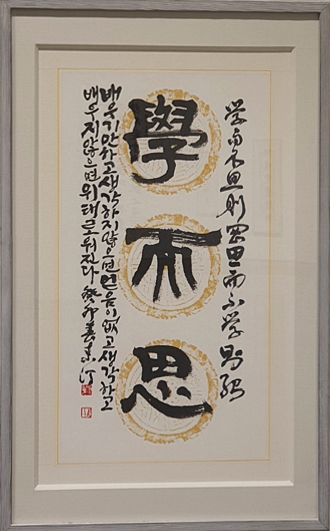 学而不思則罔思而不学則殆
學而思
배우기만하고생각하지않으면얻음이없고생각하고
배우지않으면위태로워진다 癸卯春